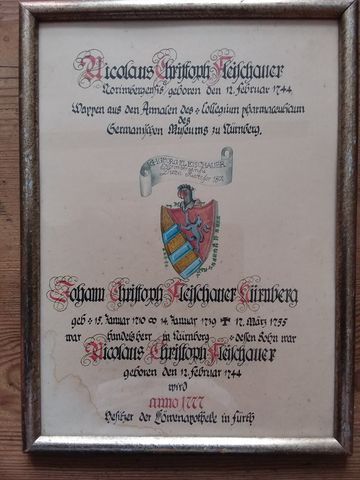 Nicolaus Christoph Fleischauer
Norimbergensis geboren den 12. Februar 1744
Wappen aus den Annalen des + Collegium pharmaceuticum
des
Germanischen Museums zu Nürnberg.
FLEISCHAUER
Johann Christoph Fleischauer Nürnberg
geb + 15. Januar 1710 ∞ 14. Januar 1739 ✝ 17. März 1755
war Handelsherr in Nürnberg + dessen Sohn war
Nicolaus Christoph Fleischauer
geboren den 12. Februar 1744
wird
anno 1777
Besitzer der Löwenapotheke in Fürth